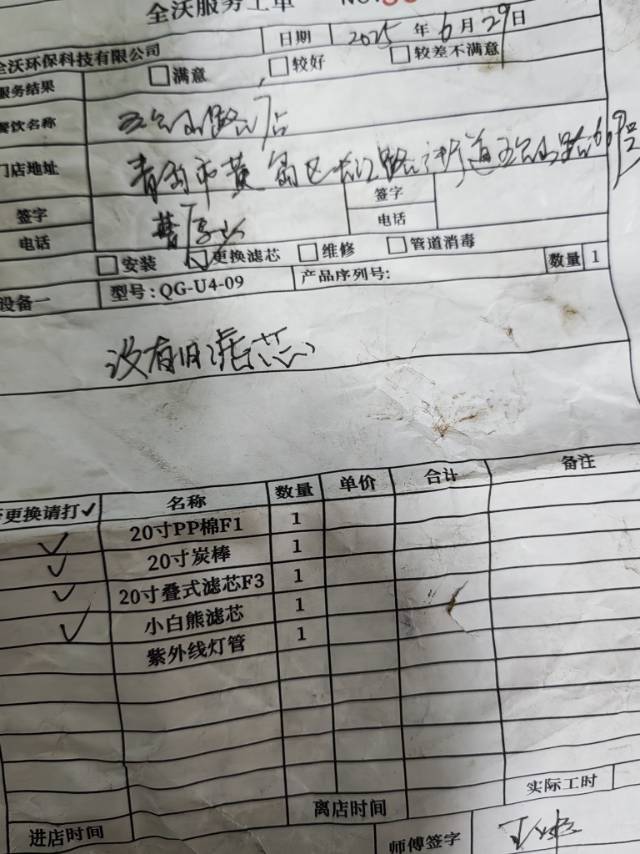 全沃服务工单 NO:
全沃环保科技有限公司 日期 2025年6月29日
服务结果 □满意 □较好 □较差不满意
餐饮名称 五台山路店
门店地址 青岛市黄岛区长江路街道五台山路669号
签字 签字
电话 电话
□安装 ☑更换滤芯 □维修 □管道消毒
设备一 型号:QG-U4-09 产品序列号: 数量 1
没有旧滤芯
更换请打✓ 名称 数量 单价 合计 备注
✓ 20寸PP棉F1 1
✓ 20寸炭棒 1
✓ 20寸叠式滤芯F3 1
✓ 小白熊滤芯 1
紫外线灯管 1
进店时间 离店时间 实际工时
师傅签字